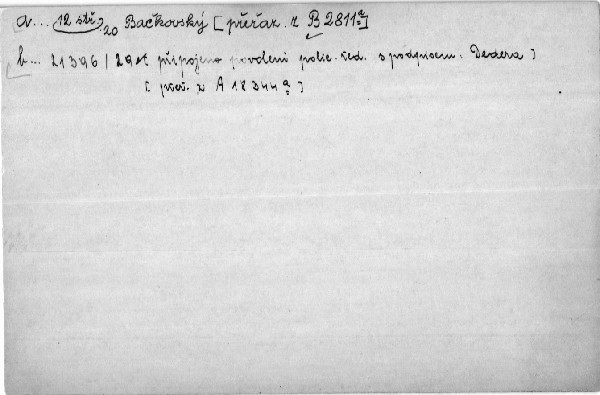 a... 12 stř. 20 Bačkovský [přeřaz. z B 2811a]
b... 21396 | 29 připojeno povolení polic. řed. s podpisem: Dedera ]
[ přeř. z A 18344a ]